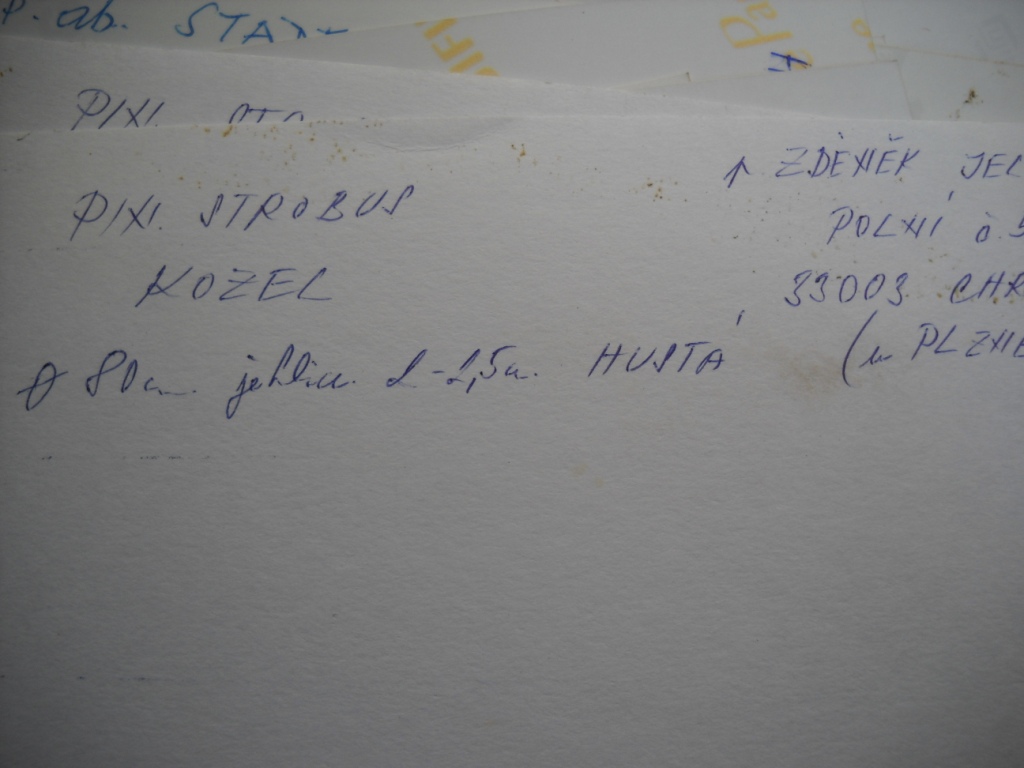 P. ab. STAN
PIXI. STRO
PIXI. STROBUS
KOZEL
Ø 80 cm. jehlice 2-2,5 cm. HUSTÁ
p ZDENĚK JEL
POLNÍ č. 5
33003 CHR
(u PLZNĚ